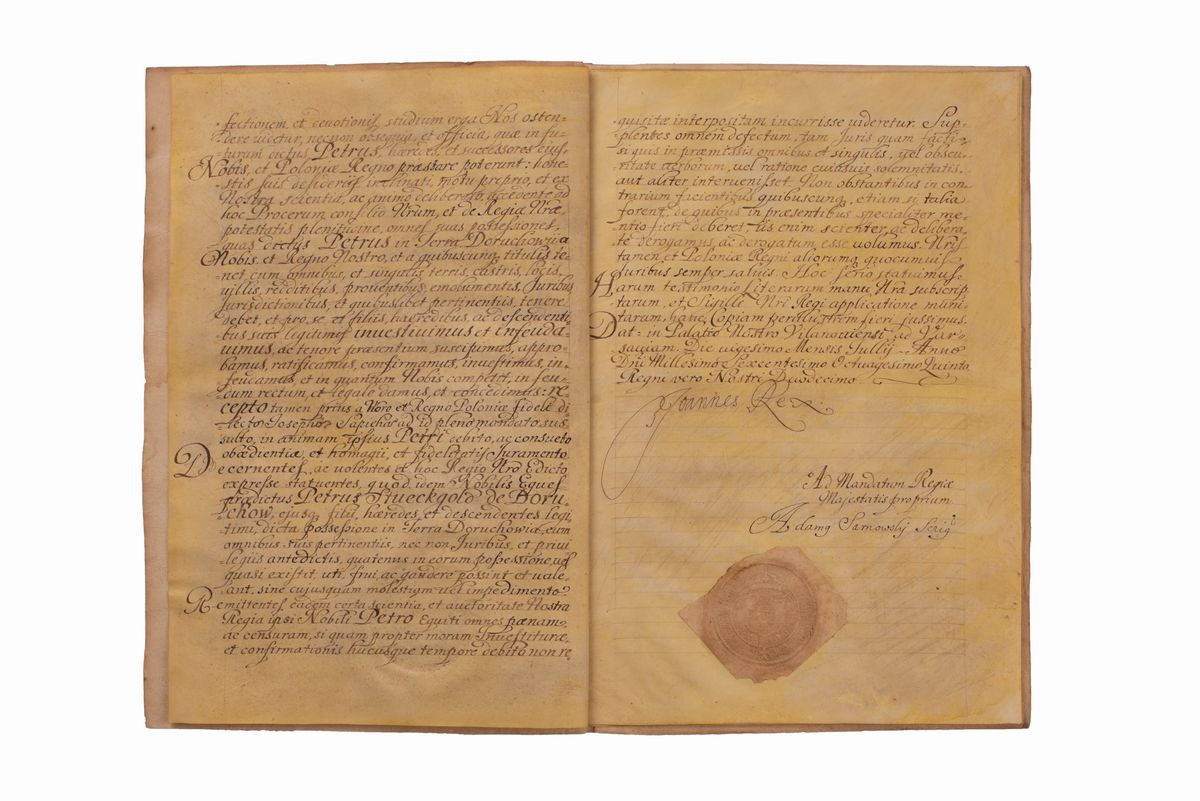 fectionem, et devotionis studium erga Nos osten-
dere videtur, necnon obsequia, et officia, quæ in fu-
turum dictus Petrus, hæredes, et successores eius,
Nobis, et Poloniæ Regno præstare poterunt: hone-
stis suis desiderijs inclinati, motu proprio, et ex
Nostra scientia, ac animo deliberato, accedente ad
hoc Procerum consilio Nrum, et de Regiæ Nræ
potestatis plenitudine, omnes suas possessiones,
quas dictus Petrus in Terra Doruchowria a
Nobis, et Regno Nostro, et a quibuscunq titulis te-
net cum omnibus, et singulis terris, castris, locis,
villis, redditibus, proventibus, emolumentis, Juribus
Jurisdictionibus, et quibuslibet pertinentiis, tenere
debet, et pro se, et filiis, hæredibus, ac descendenti-
bus suis legitimis investivimus et infeuda-
vimus, ac tenore præsentium suscipimus, appro-
bamus, ratificamus, confirmamus, investimus, in-
feudamus, et in quantum Nobis competit, in feu-
dum rectum, et legale damus, et concedimus: re-
cepto tamen prius a Nbro et Regno Poloniæ fidele di-
lecto Josepho Sapieha ad id pleno mandato suf-
fulto, in animam ipsius Petri debito, ac consueto
obædientiæ, et homagii, et fidelitatis Juramento
Decernentes, ac volentes et hoc Regio Nro Edicto
expresse statuentes, quod idem Nobilis Eques
prædictus Petrus Stueckgold de Doru-
chow, ejusq filii, hæredes, et descendentes legi-
timi, dicta possessione in Terra Doruchowia, cum
omnibus suis pertinentiis, nec non Juribus, et privi
legiis antedictis, quatenus in eorum possessione, vel
quasi existit, uti, frui, ac gaudere possint et vale-
ant, sine cujusquam molestium vel impedimento
Remittentes eadem certa scientia, et auctoritate Nostra
Regia ipsi Nobili Petro Equiti omnes pœnam,
ac censuram, si quam propter moram Investituræ,
et confirmationis hucusque tempore debito non re
quisitæ interpositam incurrisse videretur. Sup-
plentes omnem defectum, tam Juris quam facti,
si quis in præmissis omnibus et singulis, vel obscu-
ritate verborum, vel ratione cuiusvis solemnitatis,
aut aliter intervenisset Non obstantibus in con-
trarium facientibus quibuscunq, etiam si talia
forent, de quibus in præsentibus specialiter me-
ntio fieri deberet, iis enim scienter, ac delibera-
te derogamus, ac derogatum esse volumus. Nris
tamen, et Poloniæ Regni aliorumq quocumvis
Juribus semper salvis. Hoc serio statuimus
Harum testimonio literarum manu Nra subscrip-
tarum, et Sigilli Nri Regi applicatione muni-
tarum, hanc Copiam perillustrem fieri jussimus.
Dat= in Palatio Nostro Vilanoviensi, de Var-
saviam, Die vigesimo Mensis Jullij Anno
Dni Millesimo Sexcentesimo Octuagesimo Quinto,
Regni vero Nostri Duodecimo.
Joannes Rex.
Ad Mandatum Regiæ
Majestatis proprium
Adamq Sarnowslij Scrig